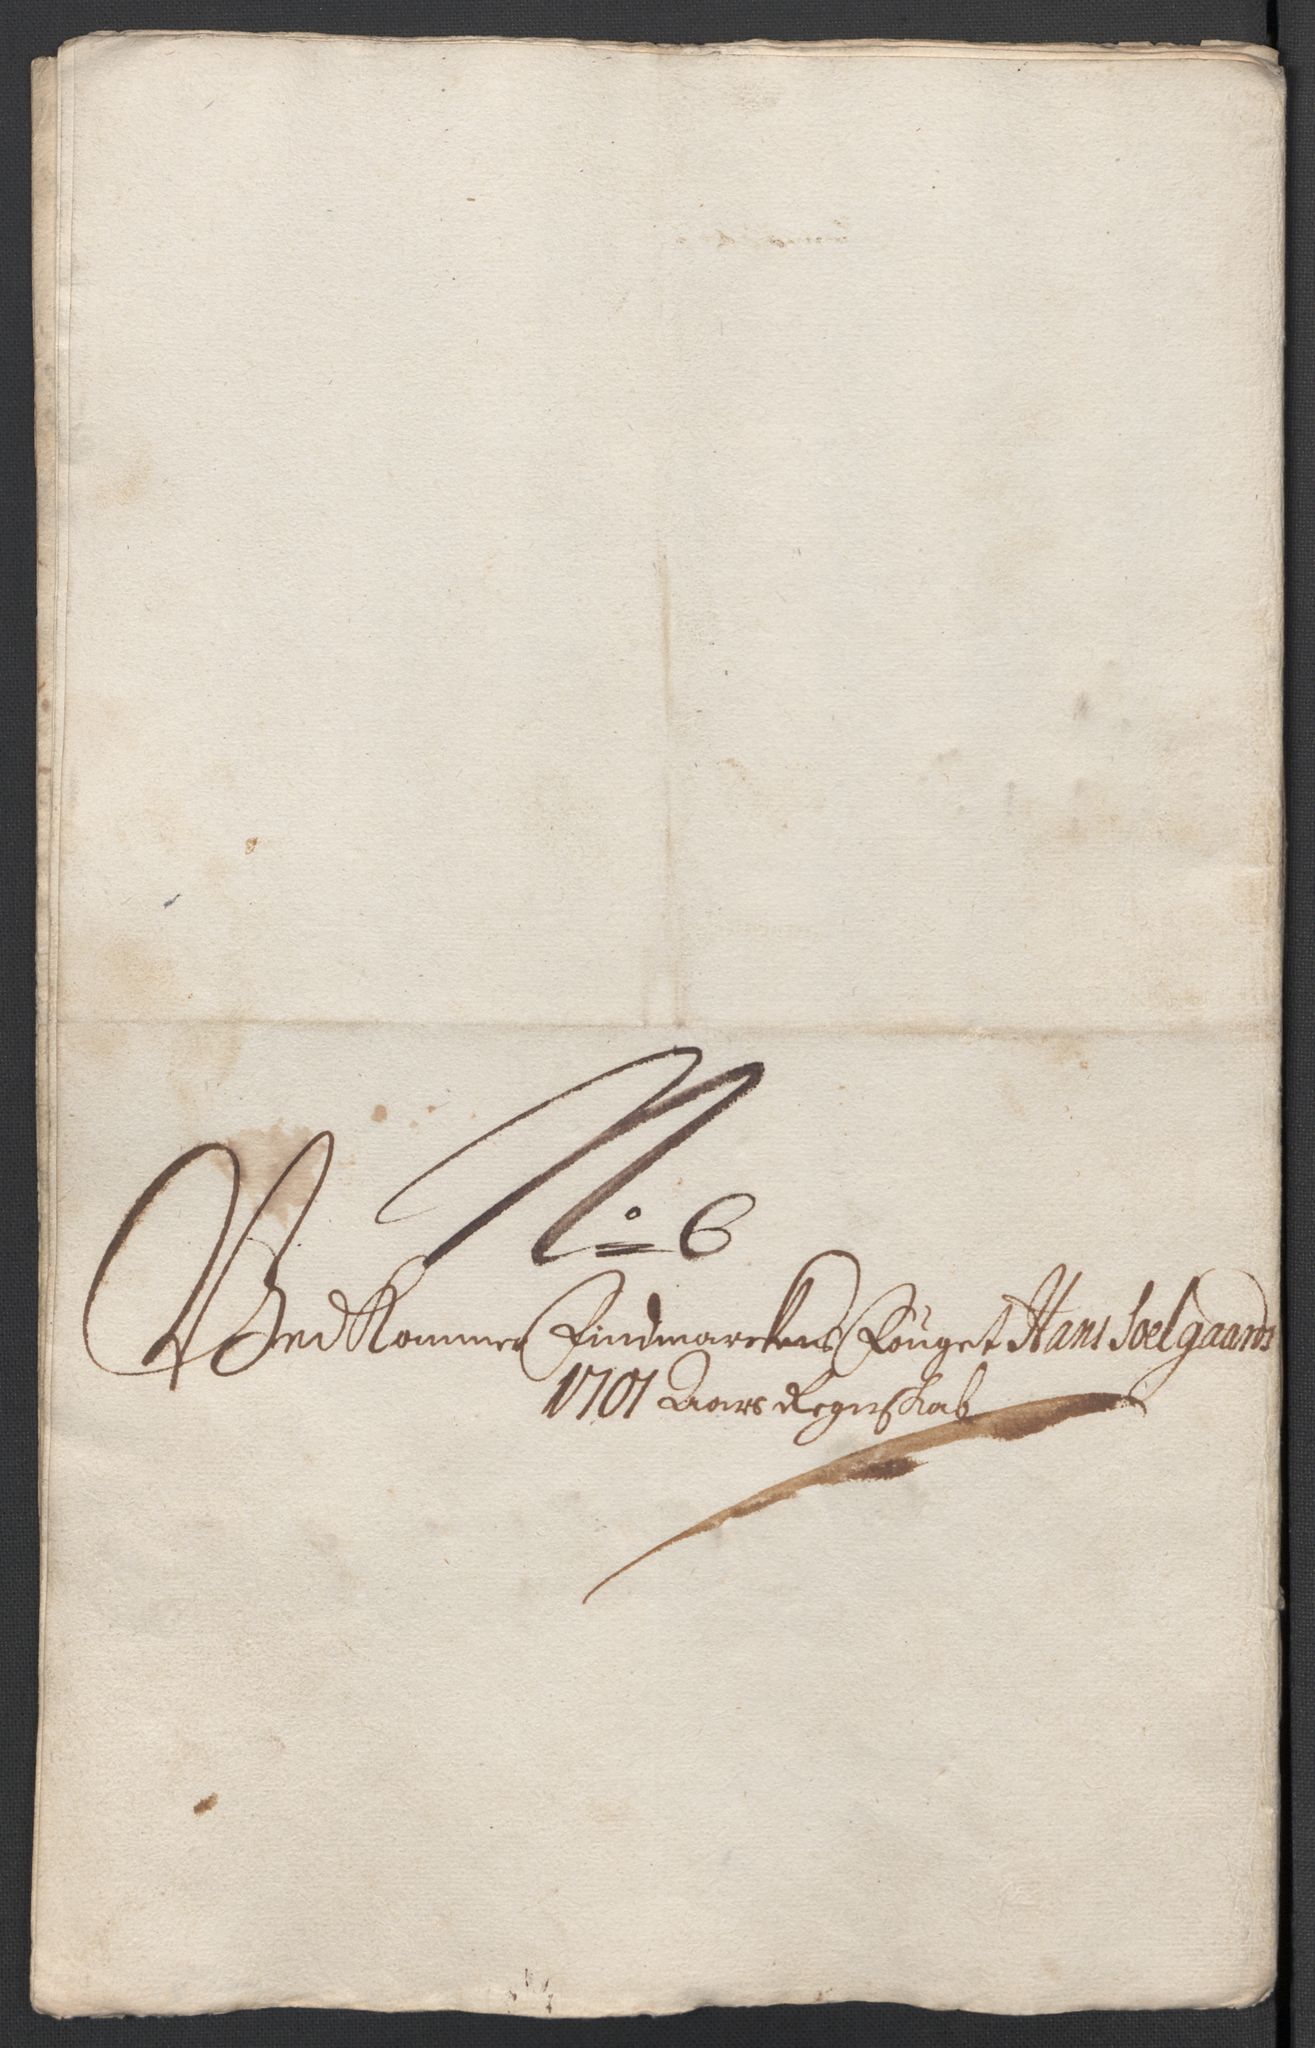 No 6
Ved Kommer Findmarckens Fouget Hans Soelgaards
1701 Aars Regnskab